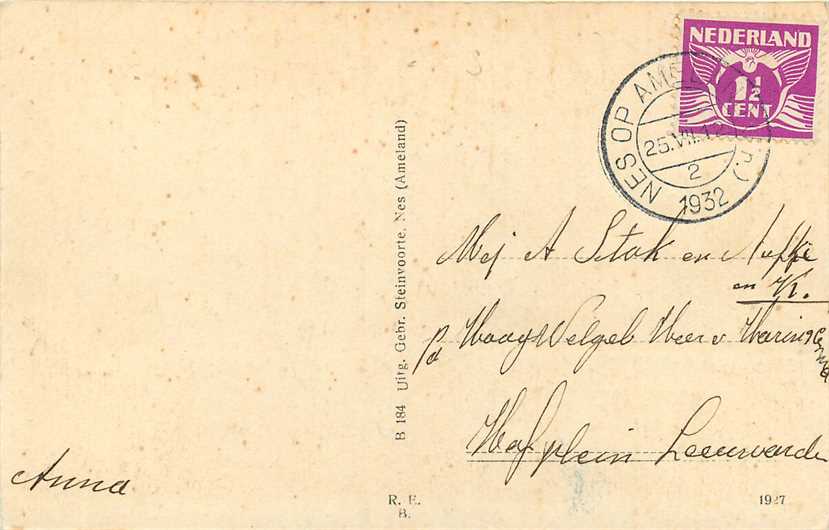 NEDERLAND
1½
CENT
NES OP AMEL
25.VII.12
2
1932
B 184 Uitg. Gebr. Steinvoorte, Nes (Ameland)
Mej A Stok en
en K.
p/a Hoog Welgeb Heer v Haringsma
Hofplein Leeuwarden
Anna
R. E.
B.
1927